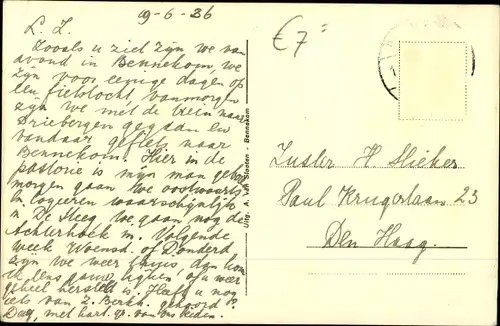 19-6-36
€7=
L. Z.
Zooals u ziet zijn we van
avond in Bennekom, we
zijn voor eenige dagen op
een fietstocht, vanmorgen
zijn we met de trein naar
Driebergen gegaan en
vandaar gefietst naar
Bennekom. Hier in de
pastorie is mijn man geboren
morgen gaan we oostwaarts
en logeeren waarschijnlijk
in De Steeg, we gaan nog de
Achterhoek in. Volgende
week Woensd. of Donderd.
zijn we weer thuis, dan kom
ik eens gauw kijken of u weer
geheel hersteld is. Heeft u nog
iets van Z. Berkh. gehoord?
Dag, met hart. gr. van ons beiden.
Uitg. A. van Slooten - Bennekom
Zuster H Slieker
Paul Krugerlaan 23
Den Haag.